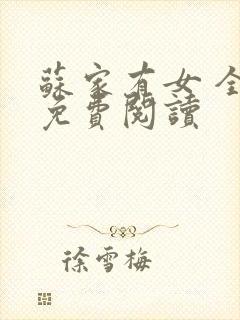 蘇家有女 全
免費閱讀
徐雪梅